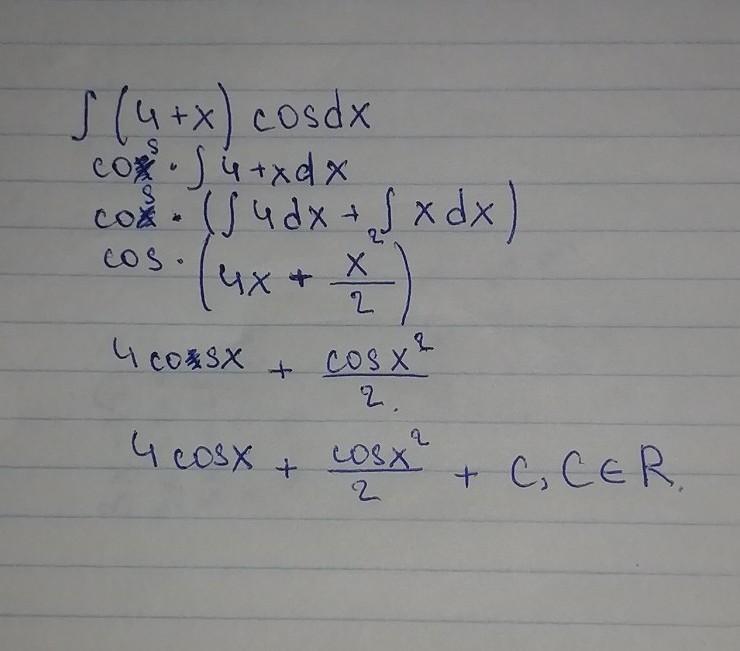 ∫ (4+x) cosdx
cos · ∫ 4+xdx
cos · (∫ 4dx + ∫ xdx)
cos · (4x + x²/2)
4cosx + cosx²/2.
4cosx + cosx²/2 + C, C∈R.